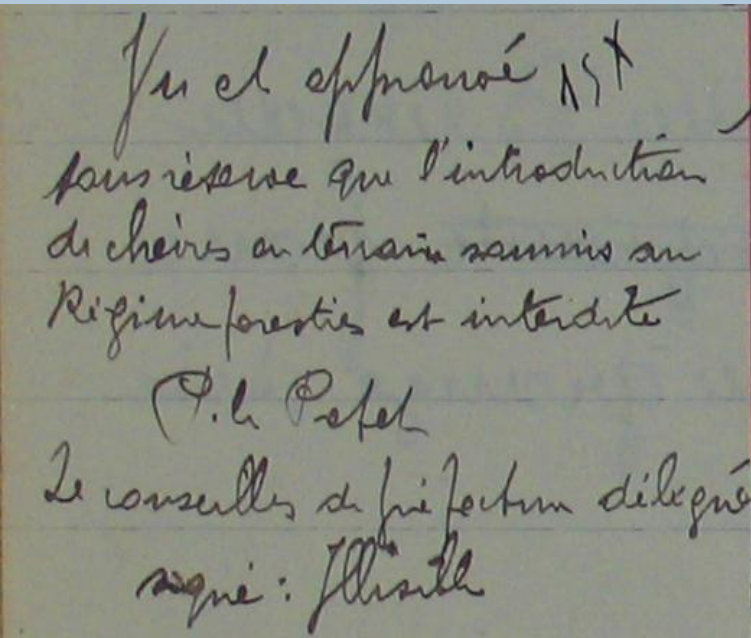 Vu et approuvé
sous réserve que l'introduction
de chèvres en terrain soumis au
Régime forestier est interdite
P. le Préfet
Le conseiller de préfecture délégué
signé : Illisible